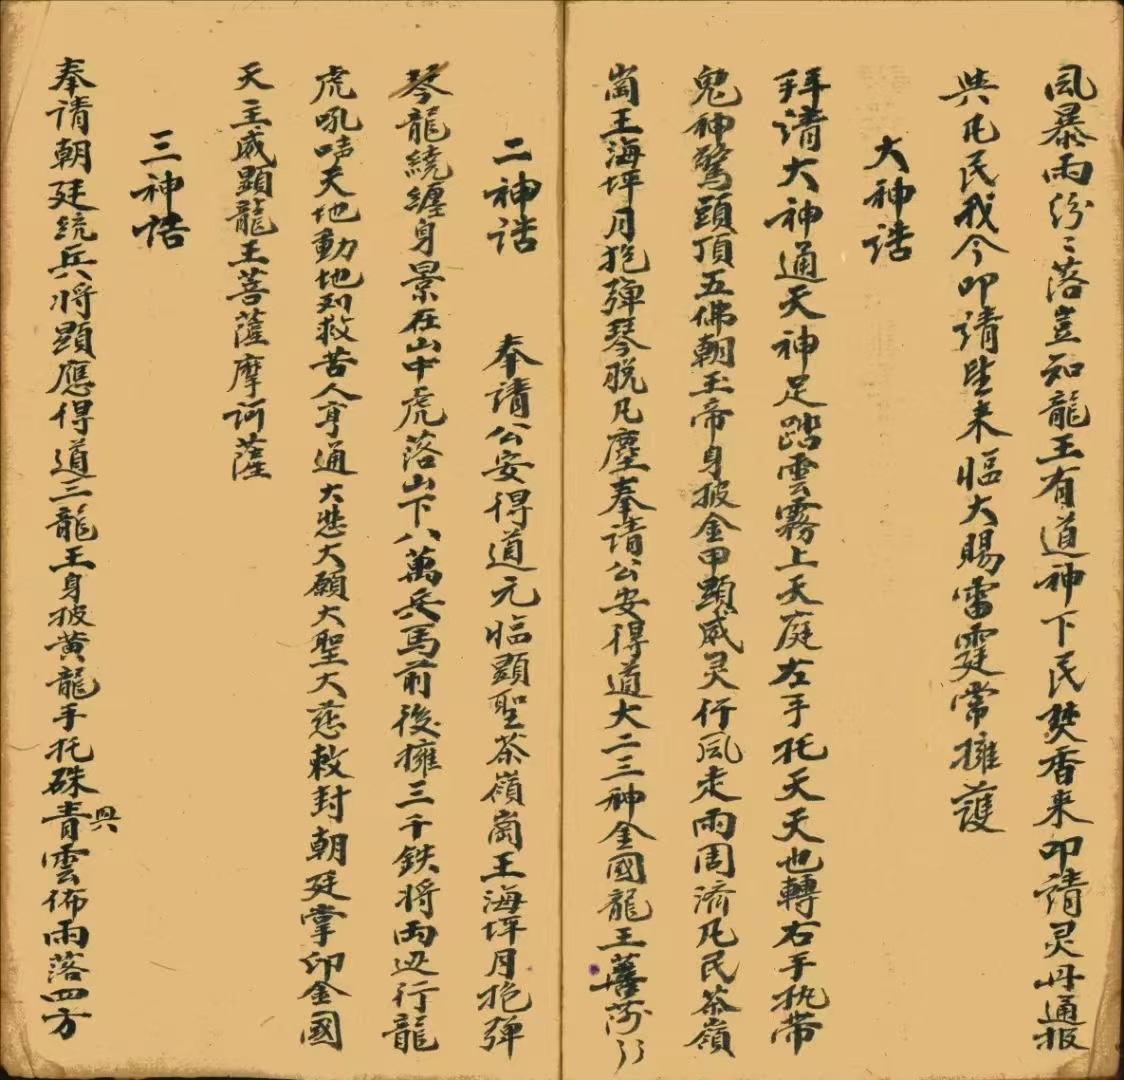 風暴雨紛〻落豈知龍王有道神下民焚香来叩請灵丹通报
與凡民我今叩請望来臨大賜雷霆常擁護
大神诰
拜請大神通天神足踏雲霧上天庭左手托天天也轉右手执带
鬼神驚頭頂五佛朝玉帝身披金甲顕威灵行風走雨周济凡民茶嶺
崗王海坪月抱弹琴脱凡塵奉請公安得道大二三神金國龍王菩萨
二神诰
奉請公安得道元臨顕聖茶嶺崗王海坪月抱弹
琴龍繞纏身景在山中虎落山下八萬兵馬前後擁三千鉄将两边行龍
虎吼吽天地動地列救苦人亨通大悲大願大聖大慈敕封朝廷掌印金國
天主威顕龍王菩薩摩诃薩
三神诰
奉請朝廷統兵将顕應得道三龍王身披黄龍手托硃青雲佈雨落四方
與